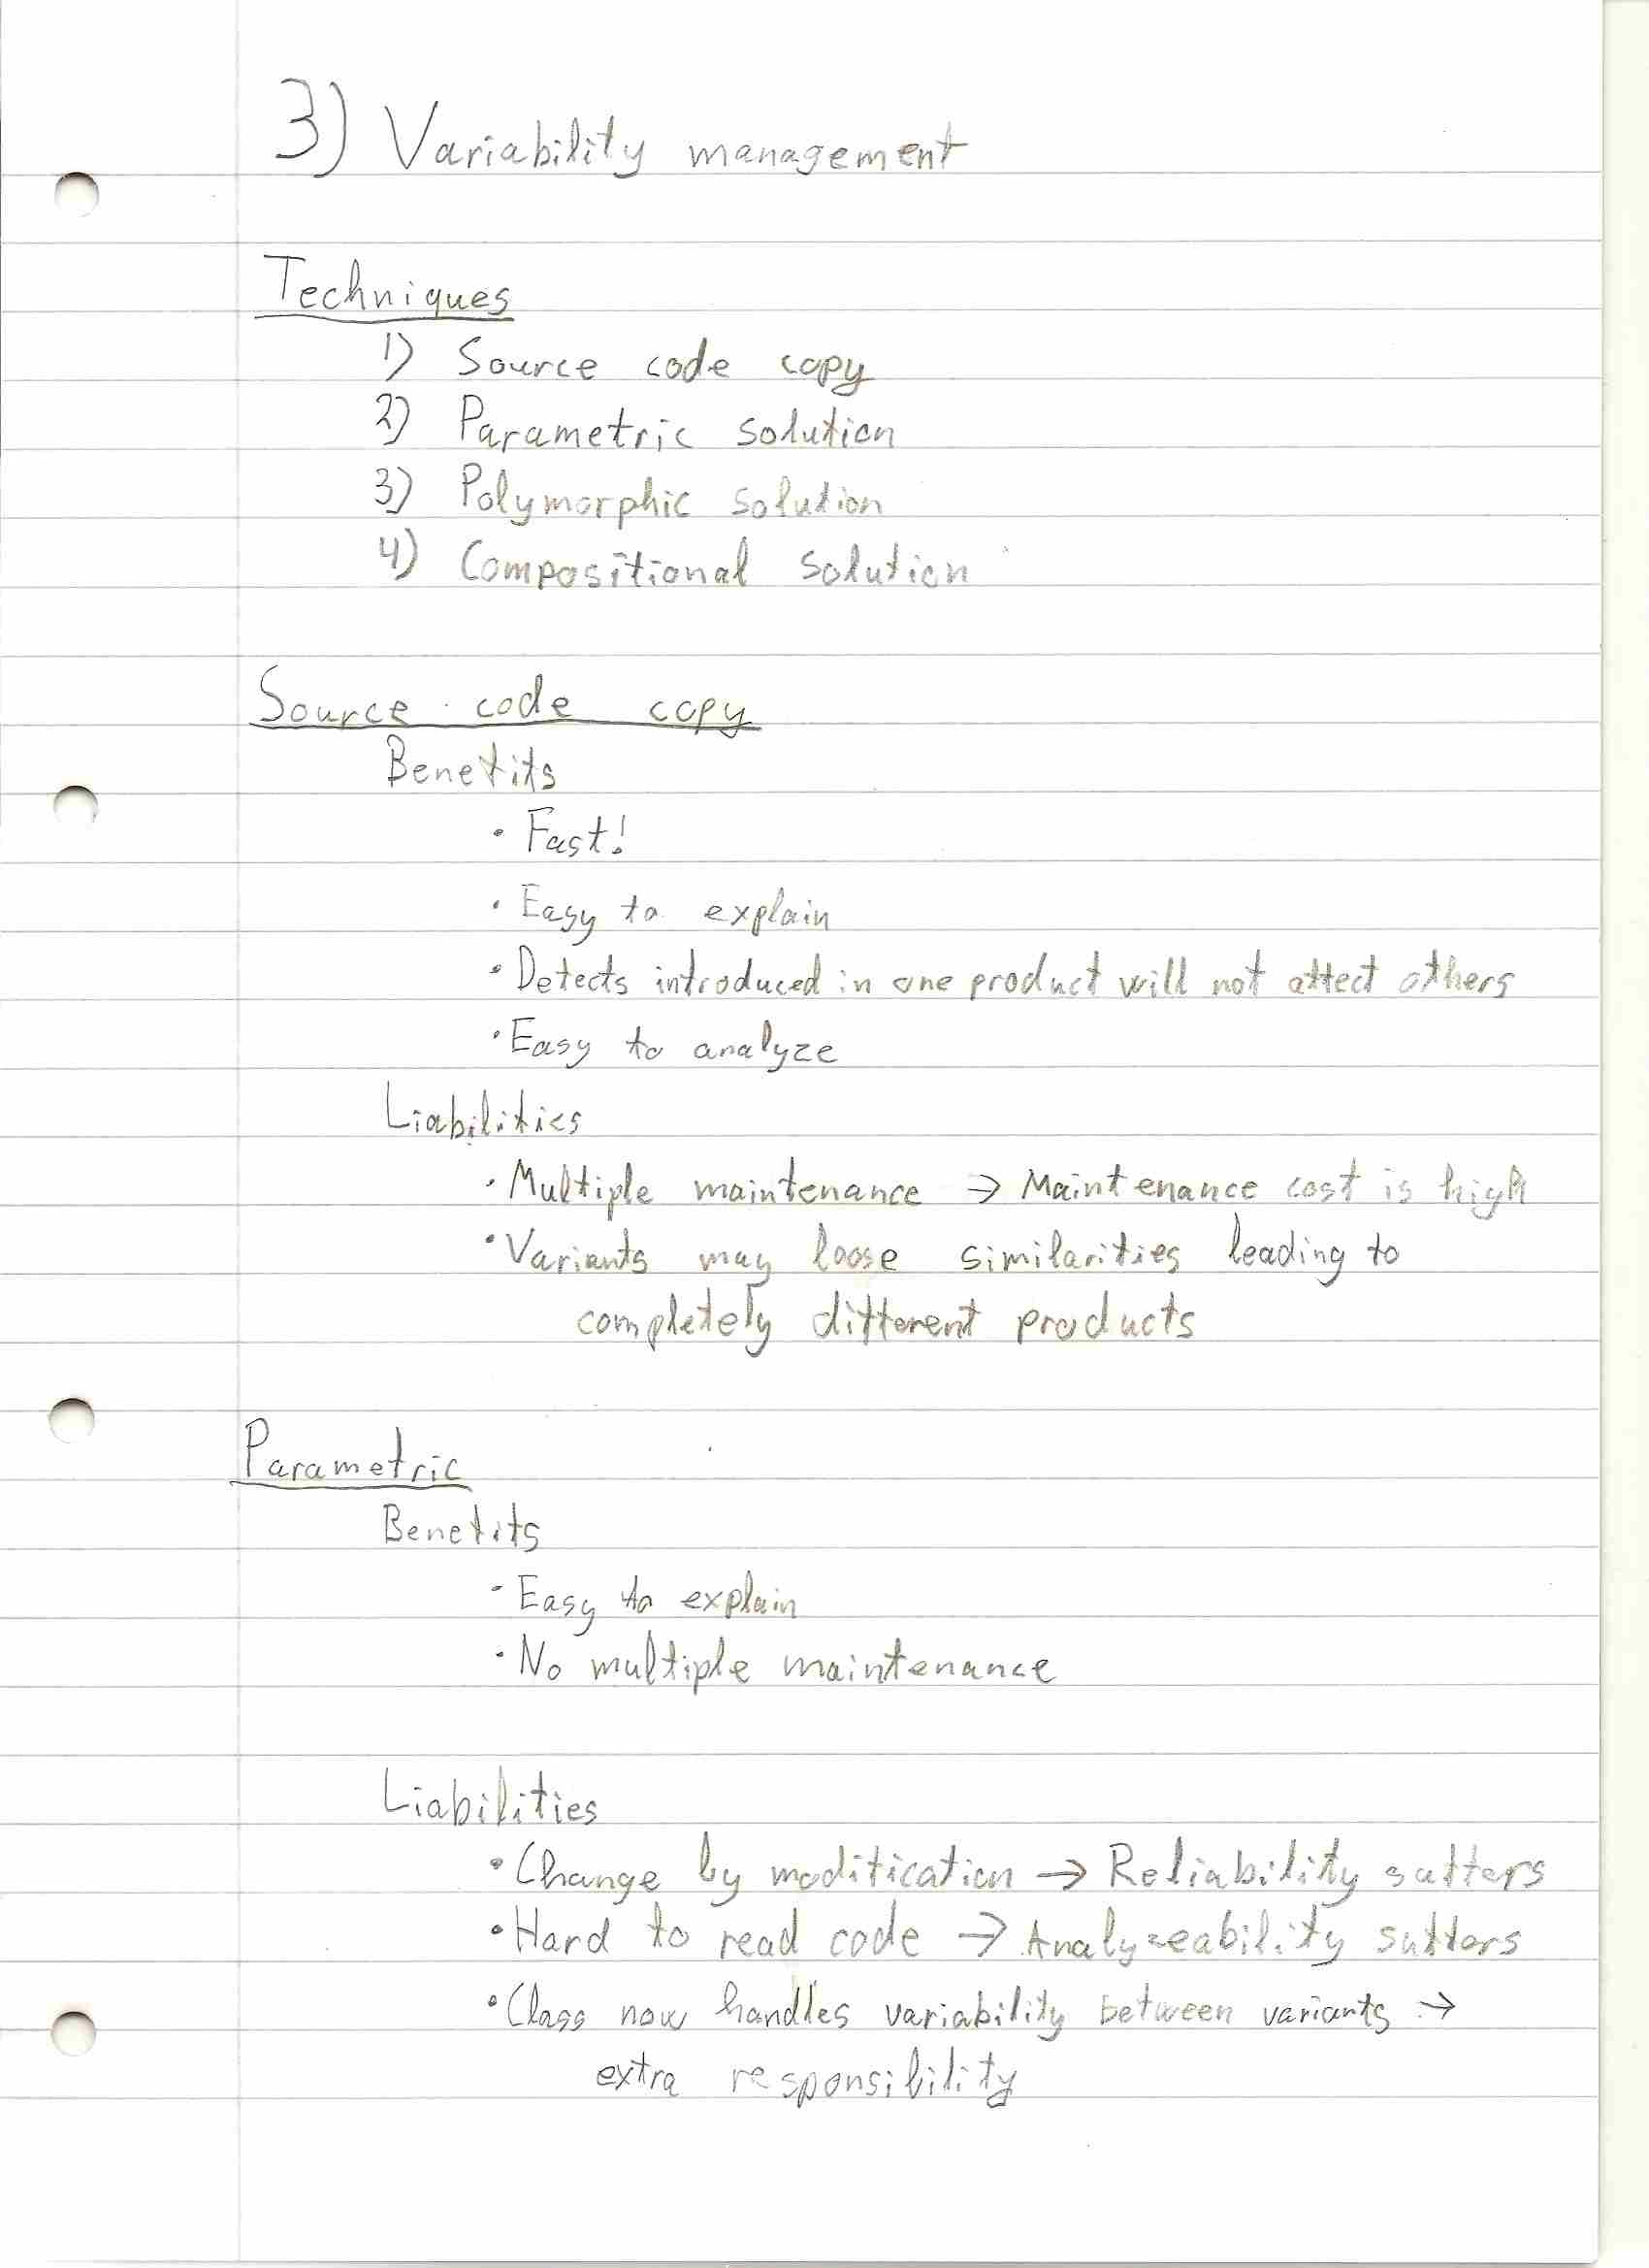 3) Variability management
Techniques
1) Source code copy
2) Parametric solution
3) Polymorphic solution
4) Compositional solution
Source code copy
Benefits
· Fast!
· Easy to explain
· Defects introduced in one product will not affect others
· Easy to analyze
Liabilities
· Multiple maintenance → Maintenance cost is high
· Variants may loose similarities leading to
completely different products
Parametric
Benefits
· Easy to explain
· No multiple maintenance
Liabilities
· Change by modification → Reliability suffers
· Hard to read code → Analyzeability suffers
· Class now handles variability between variants →
extra responsibility